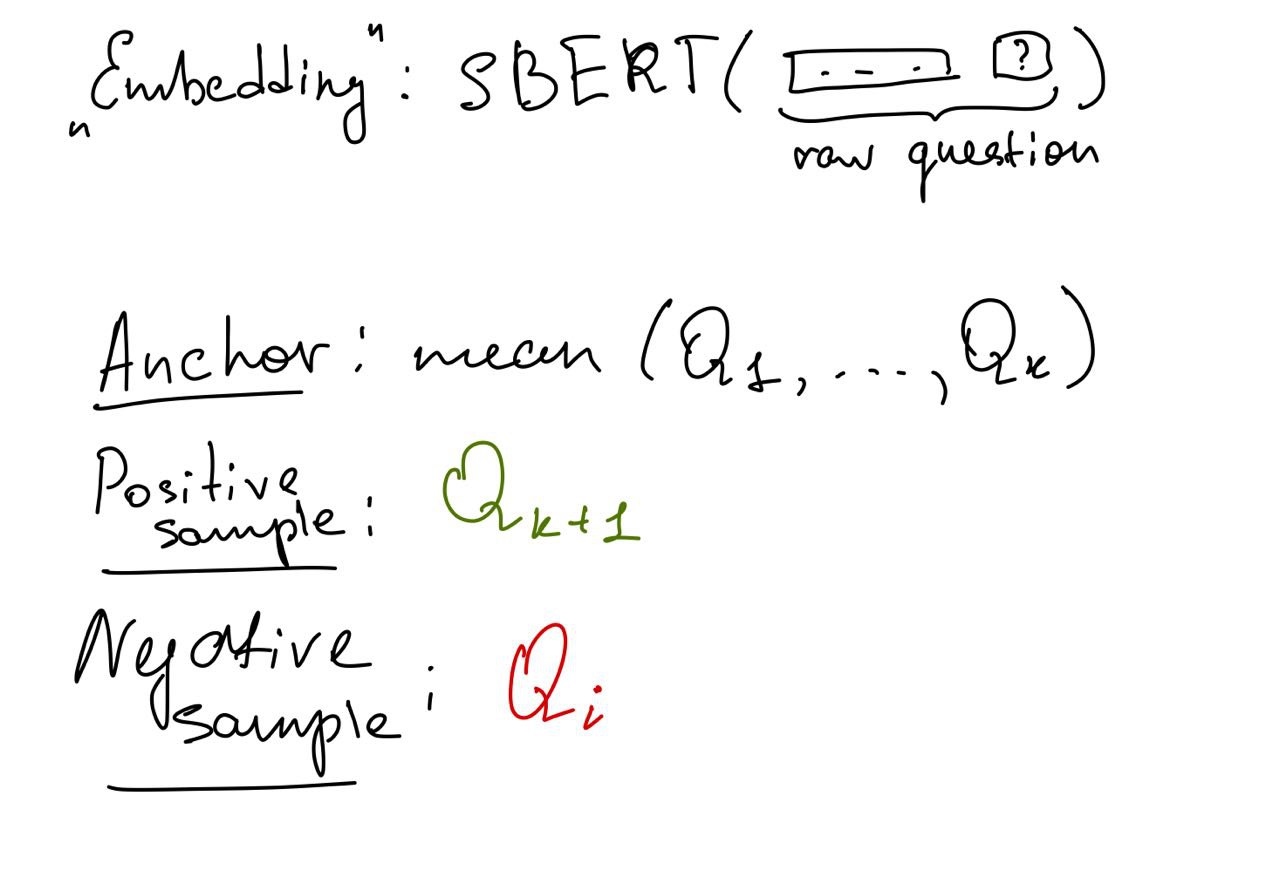 „Embedding": SBERT( . - . ? )
raw question
Anchor: mean (Q_1, ..., Q_k)
Positive
sample: Q_{k+1}
Negative
sample: Q_i